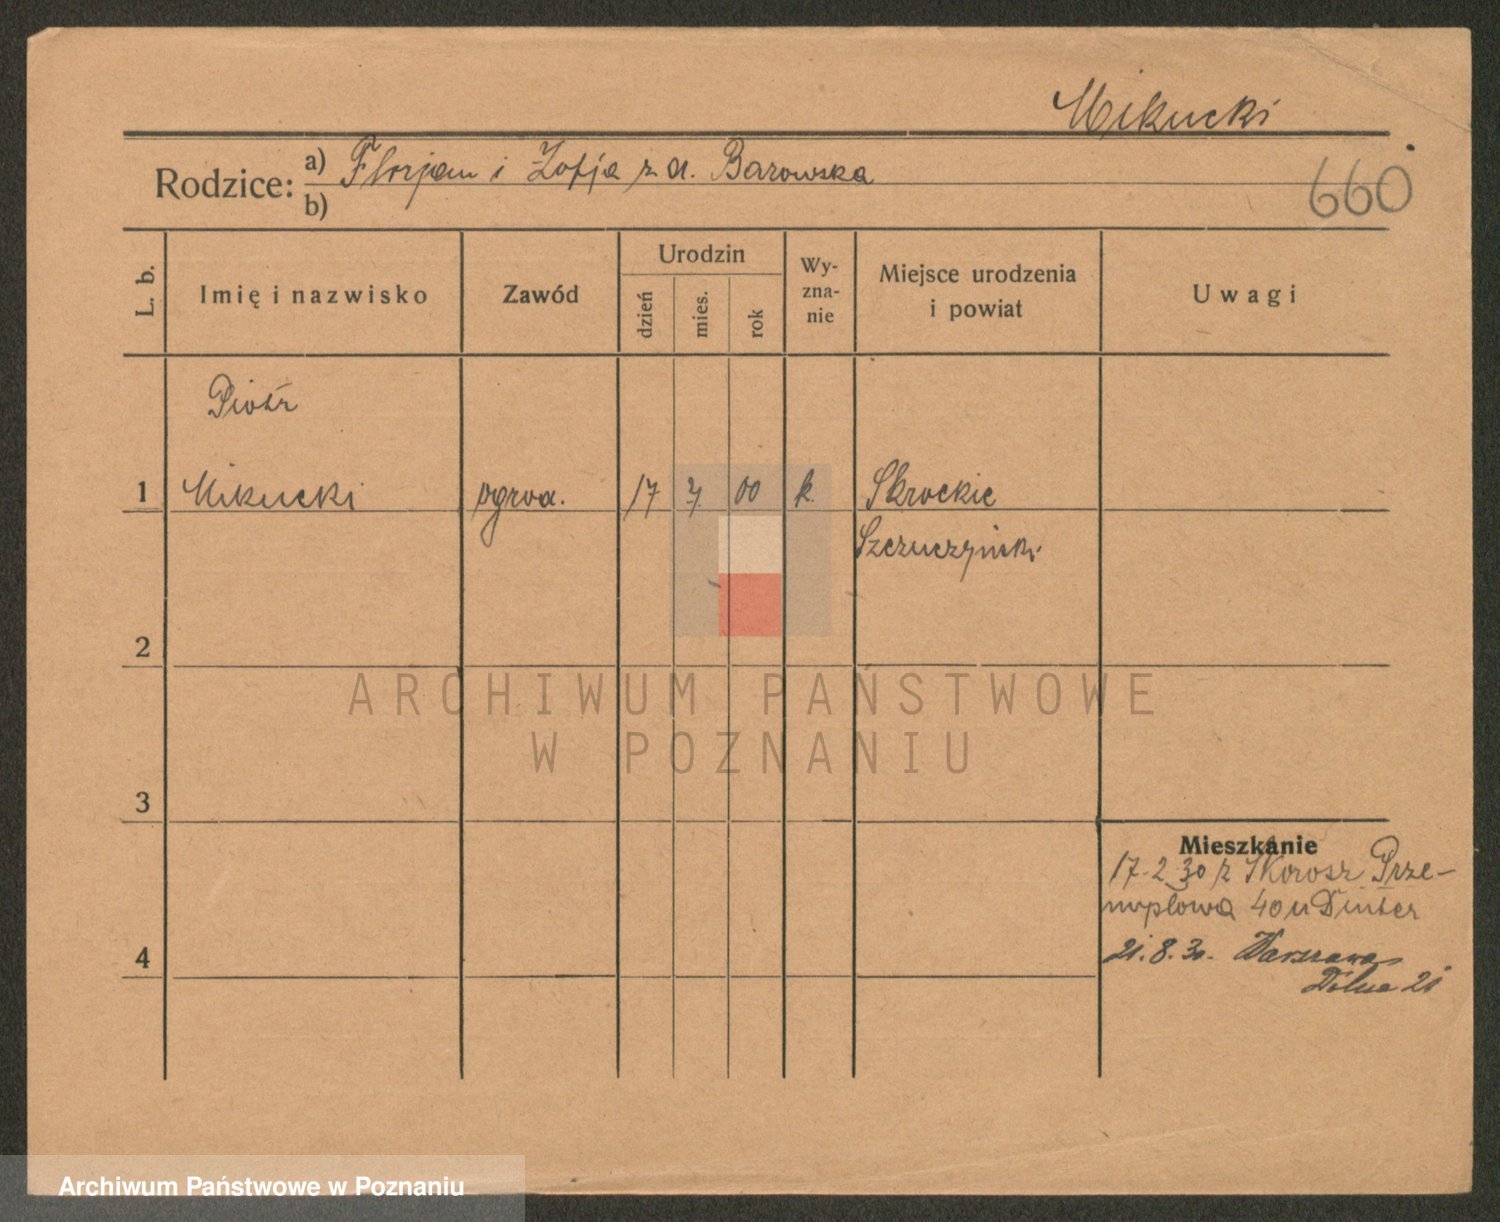 Mikucki
Rodzice: a) Florjan i Zofja z d. Barowska
b)
660
L. b.
Imię i nazwisko
Zawód
Urodzin
dzień
mies.
rok
Wy-
zna-
nie
Miejsce urodzenia
i powiat
Uwagi
Piotr
1 Mikucki ogrod. 17 00 k. Skrockie
Szczuczyński
2
3
4
Mieszkanie
17-2 30 z Prze-
mysłowa 40 u Dinter
21.8.30. Warszawa
Dolna 21
ARCHIWUM PAŃSTWOWE
W POZNANIU
Archiwum Państwowe w Poznaniu